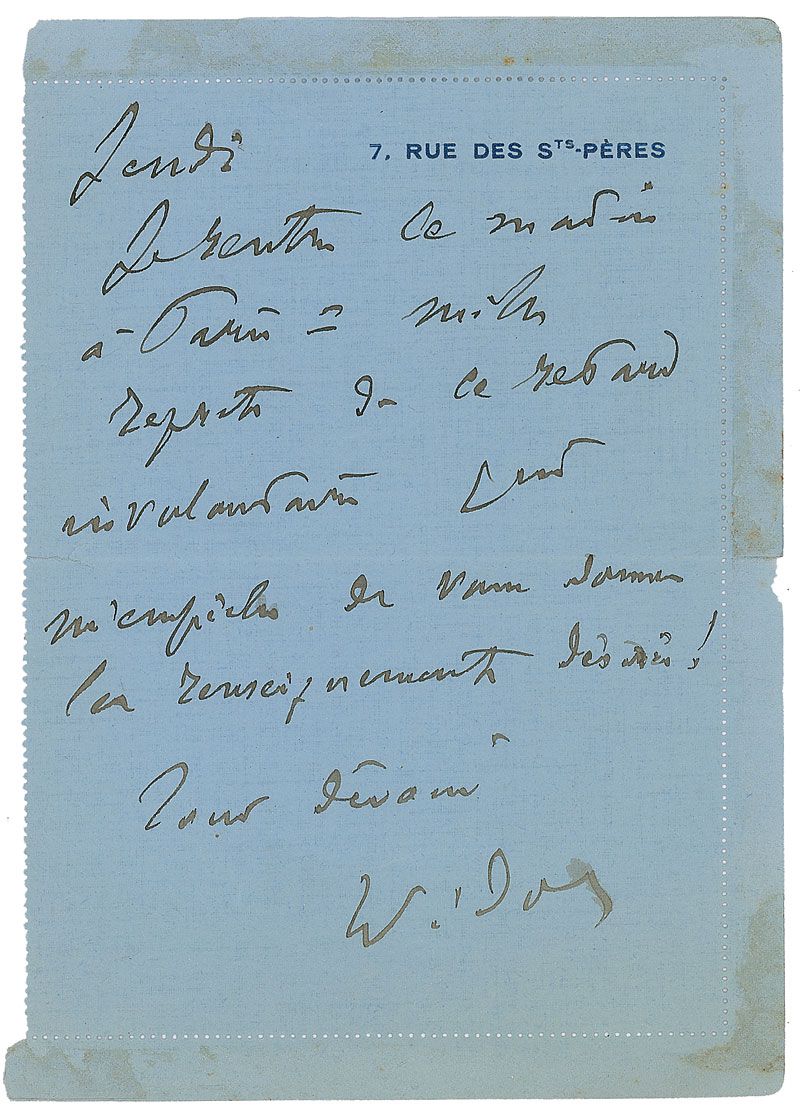 7, RUE DES STS-PÈRES
Jeudi
Je rentre ce matin
à Paris = mille
regrets de ce retard
involontaire qui
m'empêche de vous donner
les renseignements désirés!
Tout dévoué
Widor